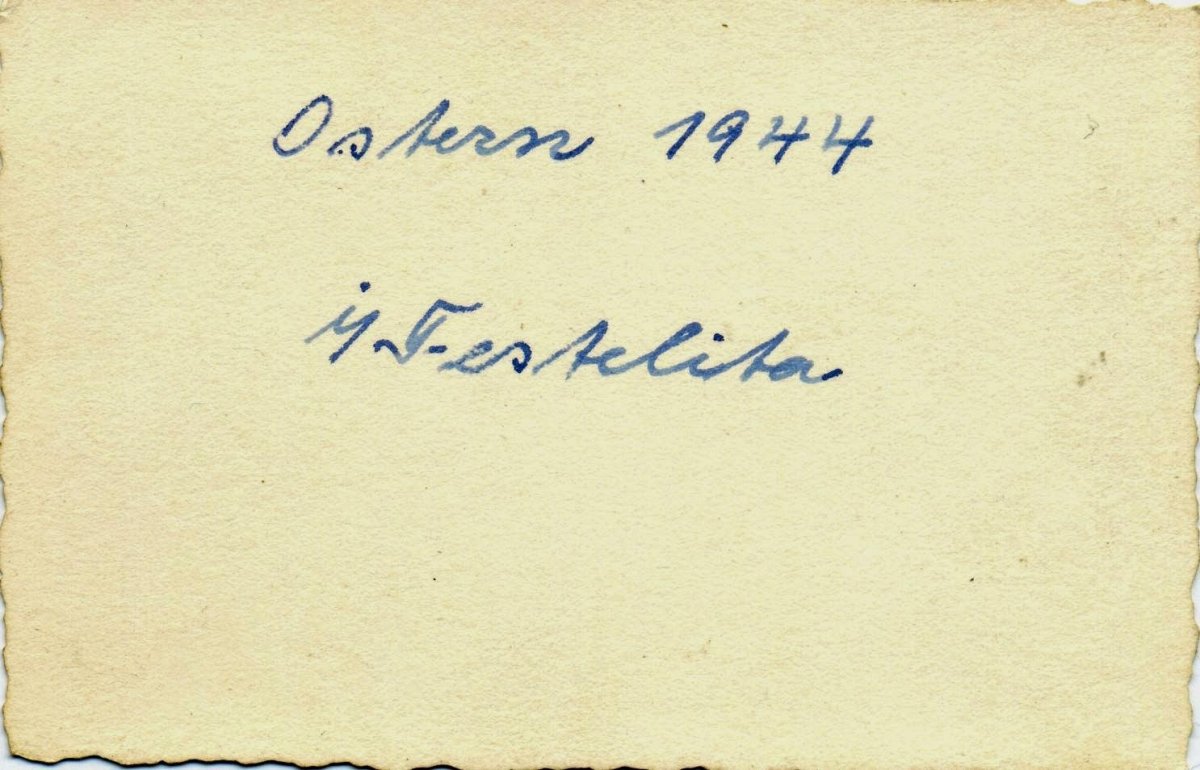 Ostern 1944
i/ Festelita